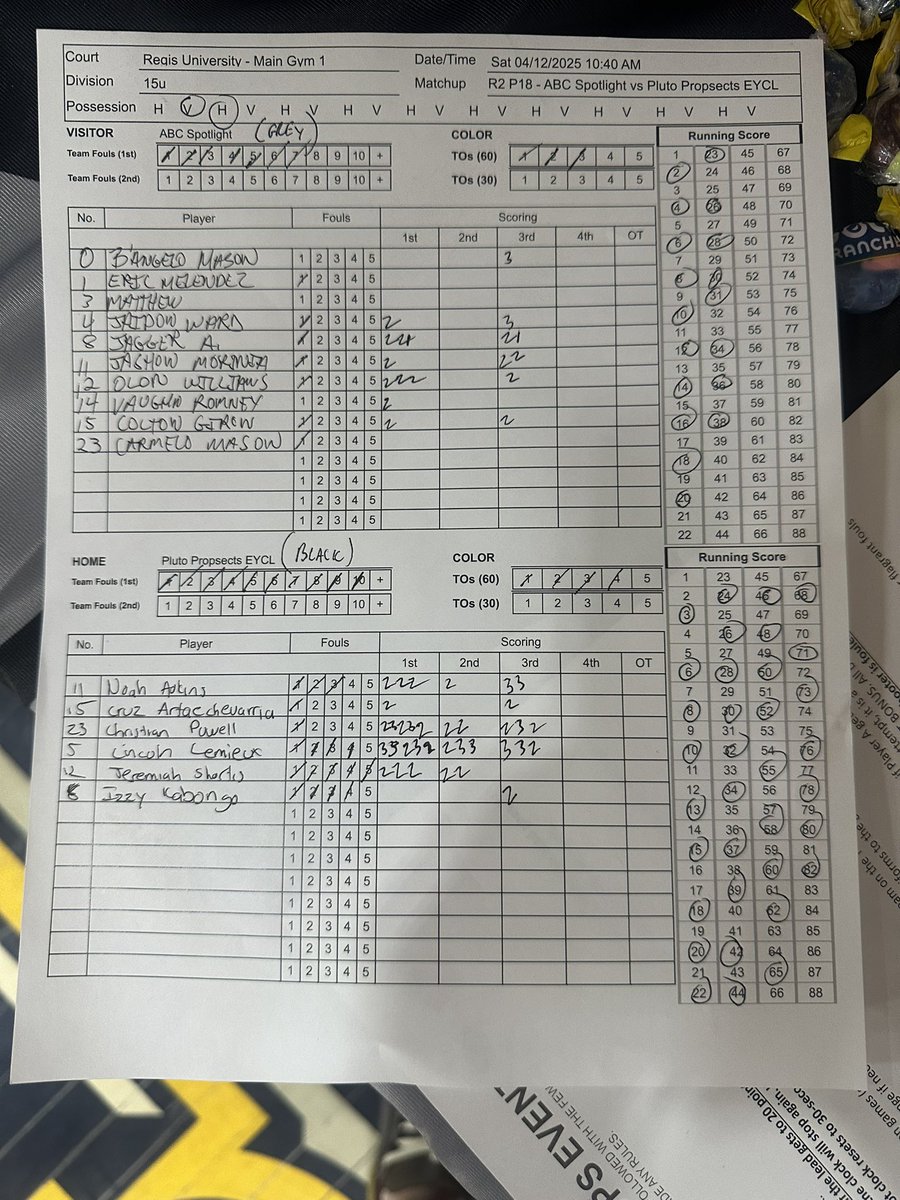 Court Regis University - Main Gym 1 Date/Time Sat 04/12/2025 10:40 AM
Division 15u Matchup R2 P18 - ABC Spotlight vs Pluto Propsects EYCL
Possession H V H V H V H V H V H V H V H V H V H V
VISITOR ABC Spotlight (GREY) COLOR
Team Fouls (1st) 1 2 3 4 5 6 7 8 9 10 + TOs (60) 1 2 3 4 5
Team Fouls (2nd) 1 2 3 4 5 6 7 8 9 10 + TOs (30) 1 2 3 4 5
No. Player Fouls Scoring
1st 2nd 3rd 4th OT
0 D'ANGELO MASON 1 2 3 4 5 3
1 ERIC MELENDEZ 1 2 3 4 5
3 MATTHEW 1 2 3 4 5
4 WARD 1 2 3 4 5 2 3
8 JAGGER A. 1 2 3 4 5 21
11 1 2 3 4 5 2 22
12 WILLIAMS 1 2 3 4 5 222 2
14 VAUGHN ROMNEY 1 2 3 4 5 2
15 COLTON 1 2 3 4 5 2 2
23 CARMELO MASON 1 2 3 4 5
1 2 3 4 5
1 2 3 4 5
1 2 3 4 5
1 2 3 4 5
Running Score
1 23 45 67
2 24 46 68
3 25 47 69
4 26 48 70
5 27 49 71
6 28 50 72
7 29 51 73
8 30 52 74
9 31 53 75
10 32 54 76
11 33 55 77
12 34 56 78
13 35 57 79
14 36 58 80
15 37 59 81
16 38 60 82
17 39 61 83
18 40 62 84
19 41 63 85
20 42 64 86
21 43 65 87
22 44 66 88
HOME Pluto Propsects EYCL (BLACK) COLOR
Team Fouls (1st) 1 2 3 4 5 6 7 8 9 10 + TOs (60) 1 2 3 4 5
Team Fouls (2nd) 1 2 3 4 5 6 7 8 9 10 + TOs (30) 1 2 3 4 5
No. Player Fouls Scoring
1st 2nd 3rd 4th OT
11 Noah Adkins 1 2 3 4 5 222 2 33
15 Cruz Artaechevarria 1 2 3 4 5 2 2
23 Christian Powell 1 2 3 4 5 23232 22 232
5 Lincoln Lemieux 1 2 3 4 5 233 332
12 Jeremiah 1 2 3 4 5 222 22
8 Izzy Kabongo 1 2 3 4 5 2
1 2 3 4 5
1 2 3 4 5
1 2 3 4 5
1 2 3 4 5
1 2 3 4 5
1 2 3 4 5
1 2 3 4 5
1 2 3 4 5
Running Score
1 23 45 67
2 24 46 68
3 25 47 69
4 26 48 70
5 27 49 71
6 28 50 72
7 29 51 73
8 30 52 74
9 31 53 75
10 32 54 76
11 33 55 77
12 34 56 78
13 35 57 79
14 36 58 80
15 37 59 81
16 38 60 82
17 39 61 83
18 40 62 84
19 41 63 85
20 42 64 86
21 43 65 87
22 44 66 88
RANCH
flagrant fouls
PS EVENT
OLLOWED WITH THE FEW
DE ANY RULES.
the lead gets to 20 poin
e clock will stop again.
ot clock resets to 30-sec